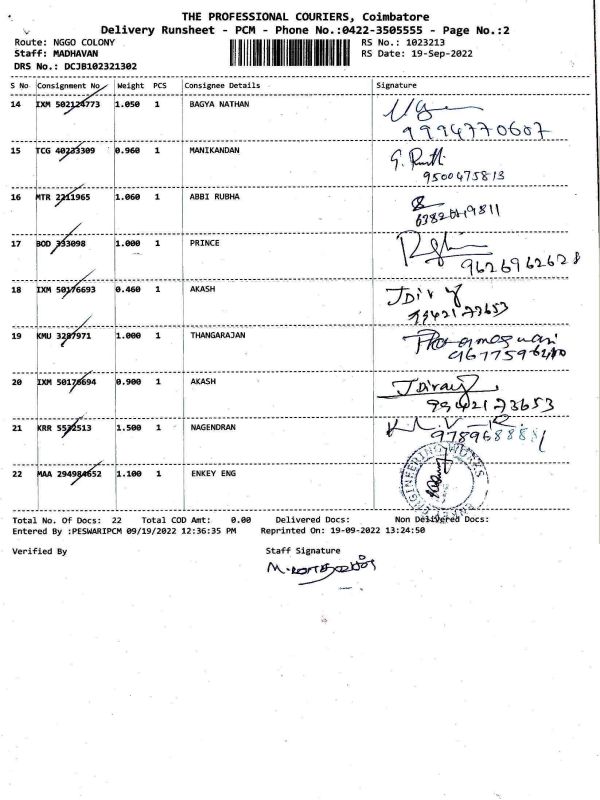 THE PROFESSIONAL COURIERS, Coimbatore
Delivery Runsheet - PCM - Phone No.:0422-3505555 - Page No.:2
Route: NGGO COLONY RS No.: 1023213
Staff: MADHAVAN RS Date: 19-Sep-2022
DRS No.: DCJB102321302
S No Consignment No Weight PCS Consignee Details Signature
14 IXM 502124773 1.050 1 BAGYA NATHAN
9994770607
15 TCG 40233309 0.960 1 MANIKANDAN
9500475813
16 MTR 2211965 1.060 1 ABBI RUBHA
17 BOD 333098 1.000 1 PRINCE
9626962628
18 IXM 50176693 0.460 1 AKASH
9942173653
19 KMU 3287971 1.000 1 THANGARAJAN
20 IXM 50176694 0.900 1 AKASH
9942173653
21 KRR 5532513 1.500 1 NAGENDRAN
22 MAA 294984652 1.100 1 ENKEY ENG
ENKEY ENGINEERING WORKS
Total No. Of Docs: 22 Total COD Amt: 0.00 Delivered Docs: Non Delivered Docs:
Entered By :PESWARIPCM 09/19/2022 12:36:35 PM Reprinted On: 19-09-2022 13:24:50
Verified By Staff Signature